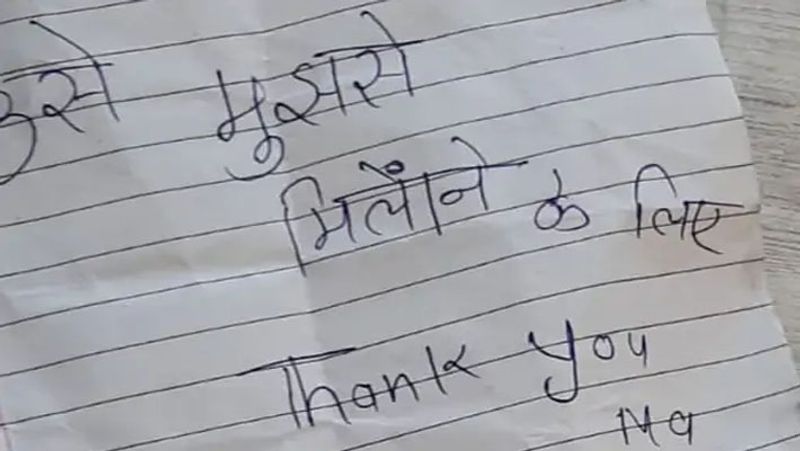 उसे मुझसे
मिलाने के लिए
Thank you
Ma